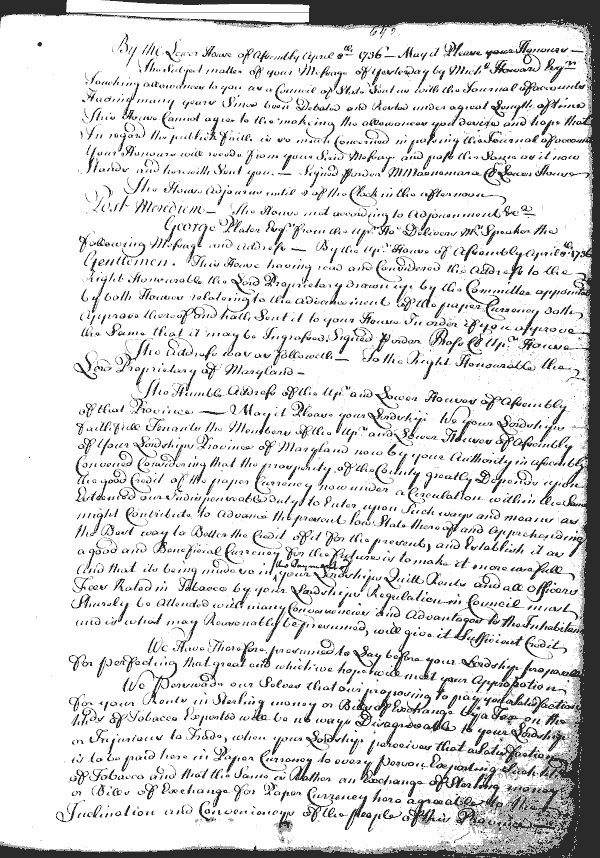 By the Lower House of Assembly April 8th 1736 - May it Please your Honours -
The Subject matter of your Message of Yesterday by Mich.ll Howard Esq.r
Touching allowances to you as a Council of State Sent us with the Journal of accounts
Having many years Since been Debated and Rested under a great Length of time
This House Cannot agree to the making the allowances you desire and hope that
In regard the publick Faith is so much Concerned in passing the Journal of accounts
Your Honours will recede from your Said Message and pass the Same as it now
Stands and herewith Sent you. - Signed p order M Macnemara Cl Lower House
The House Adjourns until 2 of the Clock in the afternoon
Post Meridiem - The House met according to Adjournment &c.a
George Plater Esq.r from the Up.r Ho.e Delivers M.r Speaker the
following Message and Address - By the Up.r House of Assembly April 8th 1736
Gentlemen. This House having read and Considered the Address to the
Right Honourable the Lord Proprietary drawn up by the Committee appointed
by both Houses relating to the Advancement of the paper Currency doth
Approve thereof and hath Sent it to your House In order if you approve
the Same that it may be Ingrossed, Signed p order Ross Cl Up.r House
The Address was as followeth - To the Right Honourable the
Lord Proprietary of Maryland -
The Humble Address of the Up.r and Lower Houses of Assembly
of that Province - May it Please your Lordship We your Lordships
faithfull Tenants the Members of the Up.r and Lower Houses of Assembly
of Your Lordships Province of Maryland now by your Authority in assembly
Convened Considering that the prosperity of the County greatly Depends upon
the good Credit of the paper Currency now under a Circulation within the Same
Esteemed our Indispensable duty to Enter upon Such ways and means as
might Contribute to Advance the present low State thereof and Apprehending
the Best way to Better the Credit of it for the present, and Establish it as
a good and Beneficial Currency for the future is to make it more usefull
And that its being made so in the payment of your Lordships Quitt Rents and all officers
Fees Rated in Tobacco by your Lordships Regulation in Council must
Shurely be Attended with many Conveniencies and Advantages to the Inhabitants
and is what may Reasonably be presumed, will give it Sufficient Credit
We Have Therefore presumed to Lay before your Lordship proposals
for perfecting that great end which we hope will meet your Approbation
We Perswade our Selves that our proposing to pay you a Satisfaction
for your Rents in Sterling money or Bills of Exchange by a Tax on the
hhds of Tobacco Exported will be no ways Disagreeable to your Lordship
or Injurious to Trade, when your Lordship perceives that a Satisfaction
is to be paid here in Paper Currency to every Person Exporting Such hhds
of Tobacco and that the Same is Rather an Exchange of Sterling money
or Bills of Exchange for Paper Currency here agreeable to the
Inclination and Conveniencys of the people of this Province